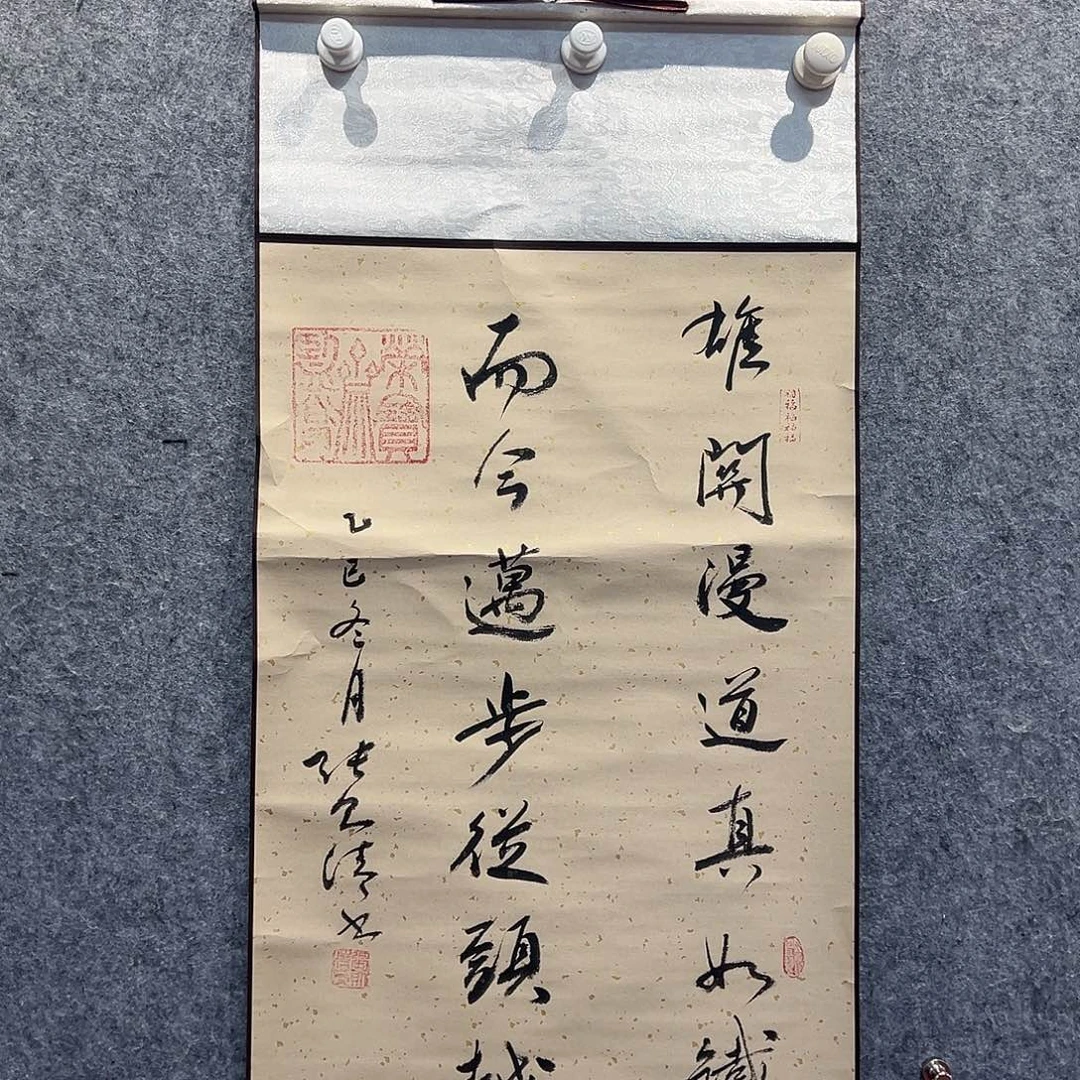 雄關漫道真如鐵
而今邁步從頭越
乙巳冬月